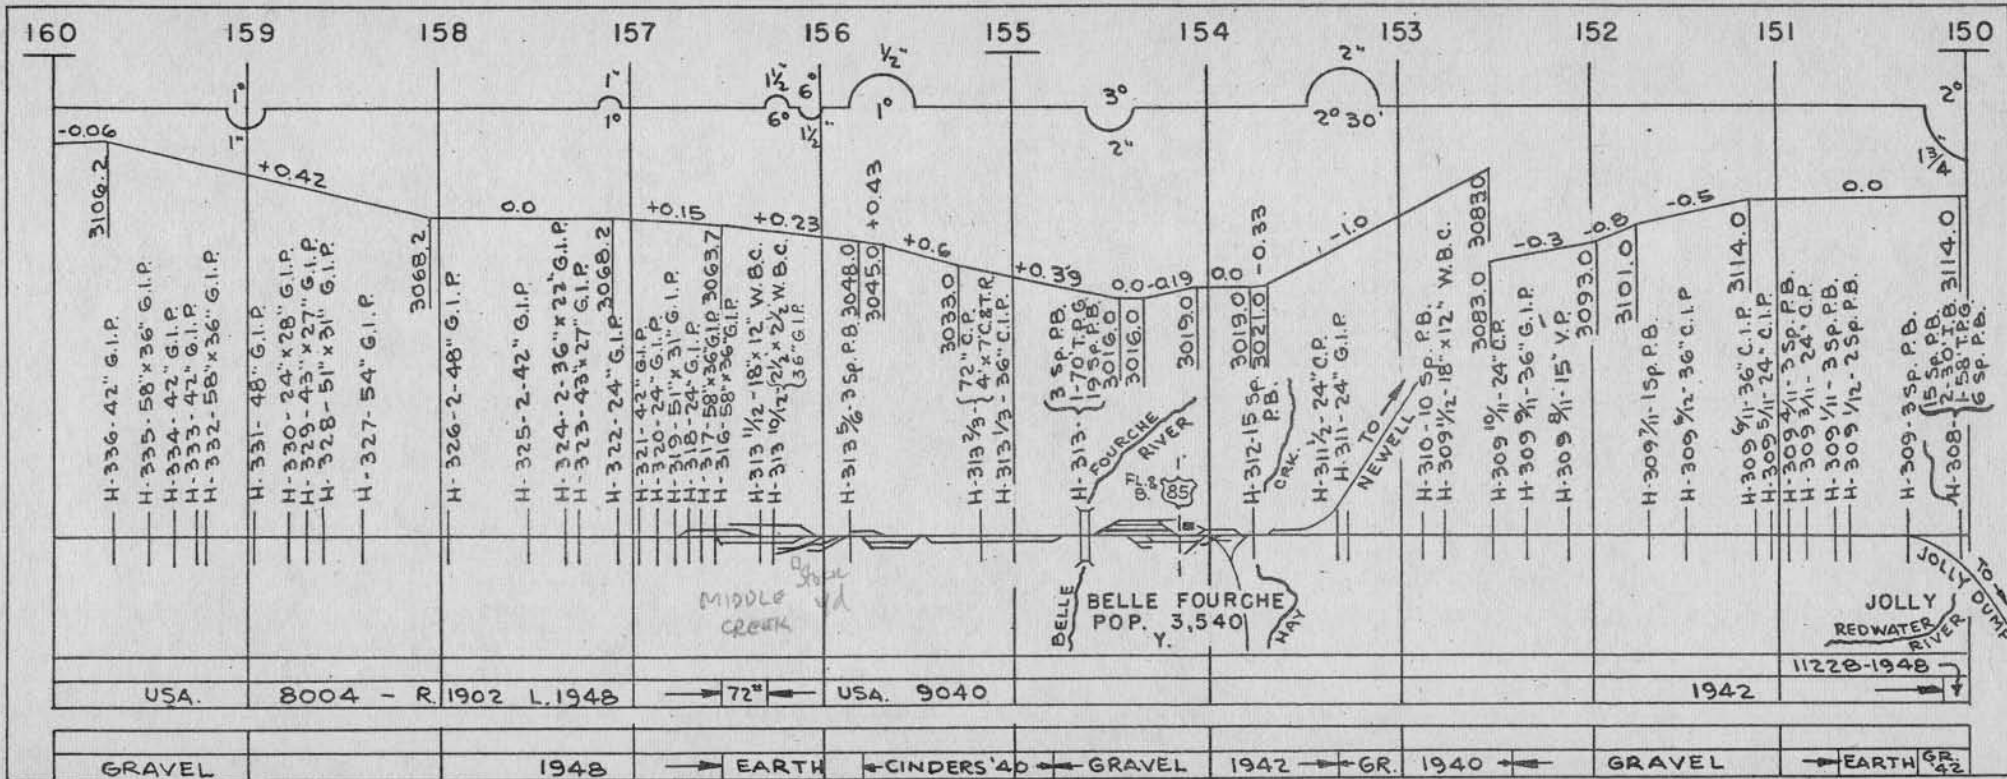 160 159 158 157 156 155 154 153 152 151 150
1° 1" 1" 1° 1½" 6° 6° 1½" ½" 1° 3° 2" 2" 2° 30' 2° 1¾"
-0.06 +0.42 0.0 +0.15 +0.23 +0.43 +0.6 +0.39 0.0 -0.19 0.0 -0.33 -1.0 -0.3 -0.8 -0.5 0.0
3106.2
3068.2
3068.2
3063.7
3048.0
3045.0
3033.0
3016.0
3016.0
3019.0
3019.0
3021.0
3083.0
3083.0
3093.0
3101.0
3114.0
3114.0
H-336-42" G.I.P.
H-335-58"x36" G.I.P.
H-334-42" G.I.P.
H-333-42" G.I.P.
H-332-58"x36" G.I.P.
H-331-48" G.I.P.
H-330-24"x28" G.I.P.
H-329-43"x27" G.I.P.
H-328-51"x31" G.I.P.
H-327-54" G.I.P.
H-326-2-48" G.I.P.
H-325-2-42" G.I.P.
H-324-2-36"x22" G.I.P.
H-323-43"x27" G.I.P.
H-322-24" G.I.P.
H-321-42" G.I.P.
H-320-24" G.I.P.
H-319-51"x31" G.I.P.
H-318-24" G.I.P.
H-317-58"x36" G.I.P.
H-316-58"x36" G.I.P.
H-313 11/12-18"x12" W.B.C.
H-313 10/12-{2½'x2½' W.B.C.
{36" G.I.P.
H-313 5/6-3 Sp. P.B.
H-313 2/3-{72" C.P.
{4'x7' C.&T.R.
H-313 1/3-36" C.I.P.
H-313-{3 Sp. P.B.
1-70' T.P.G.
19 Sp. P.B.
H-312-15 Sp.
P.B.
H-311½-24" C.P.
H-311-24" G.I.P.
H-310-10 Sp. P.B.
H-309 11/12-18"x12" W.B.C.
H-309 10/11-24" C.P.
H-309 9/11-36" G.I.P.
H-309 8/11-15" V.P.
H-309 7/11-1 Sp. P.B.
H-309 6/12-36" C.I.P
H-309 6/11-36" C.I.P.
H-309 5/11-24" C.I.P.
H-309 4/11-3 Sp. P.B.
H-309 3/11-24" C.P.
H-309 1/11-3 Sp. P.B.
H-309 1/12-2 Sp. P.B.
H-309-3 Sp. P.B.
H-308-{15 Sp. P.B.
2-30' T.B.
1-58' T.P.G.
6 Sp. P.B.
FOURCHE
RIVER
85
CRK.
TO
NEWELL
MIDDLE
CREEK
Yd
BELLE
BELLE FOURCHE
POP. 3,540
Y.
HAY
TO
JOLLY DUMP
JOLLY
REDWATER
RIVER
11228-1948
USA. 8004 - R.1902 L.1948 72# USA. 9040 1942
GRAVEL 1948 EARTH CINDERS '40 GRAVEL 1942 GR. 1940 GRAVEL EARTH GR. '42